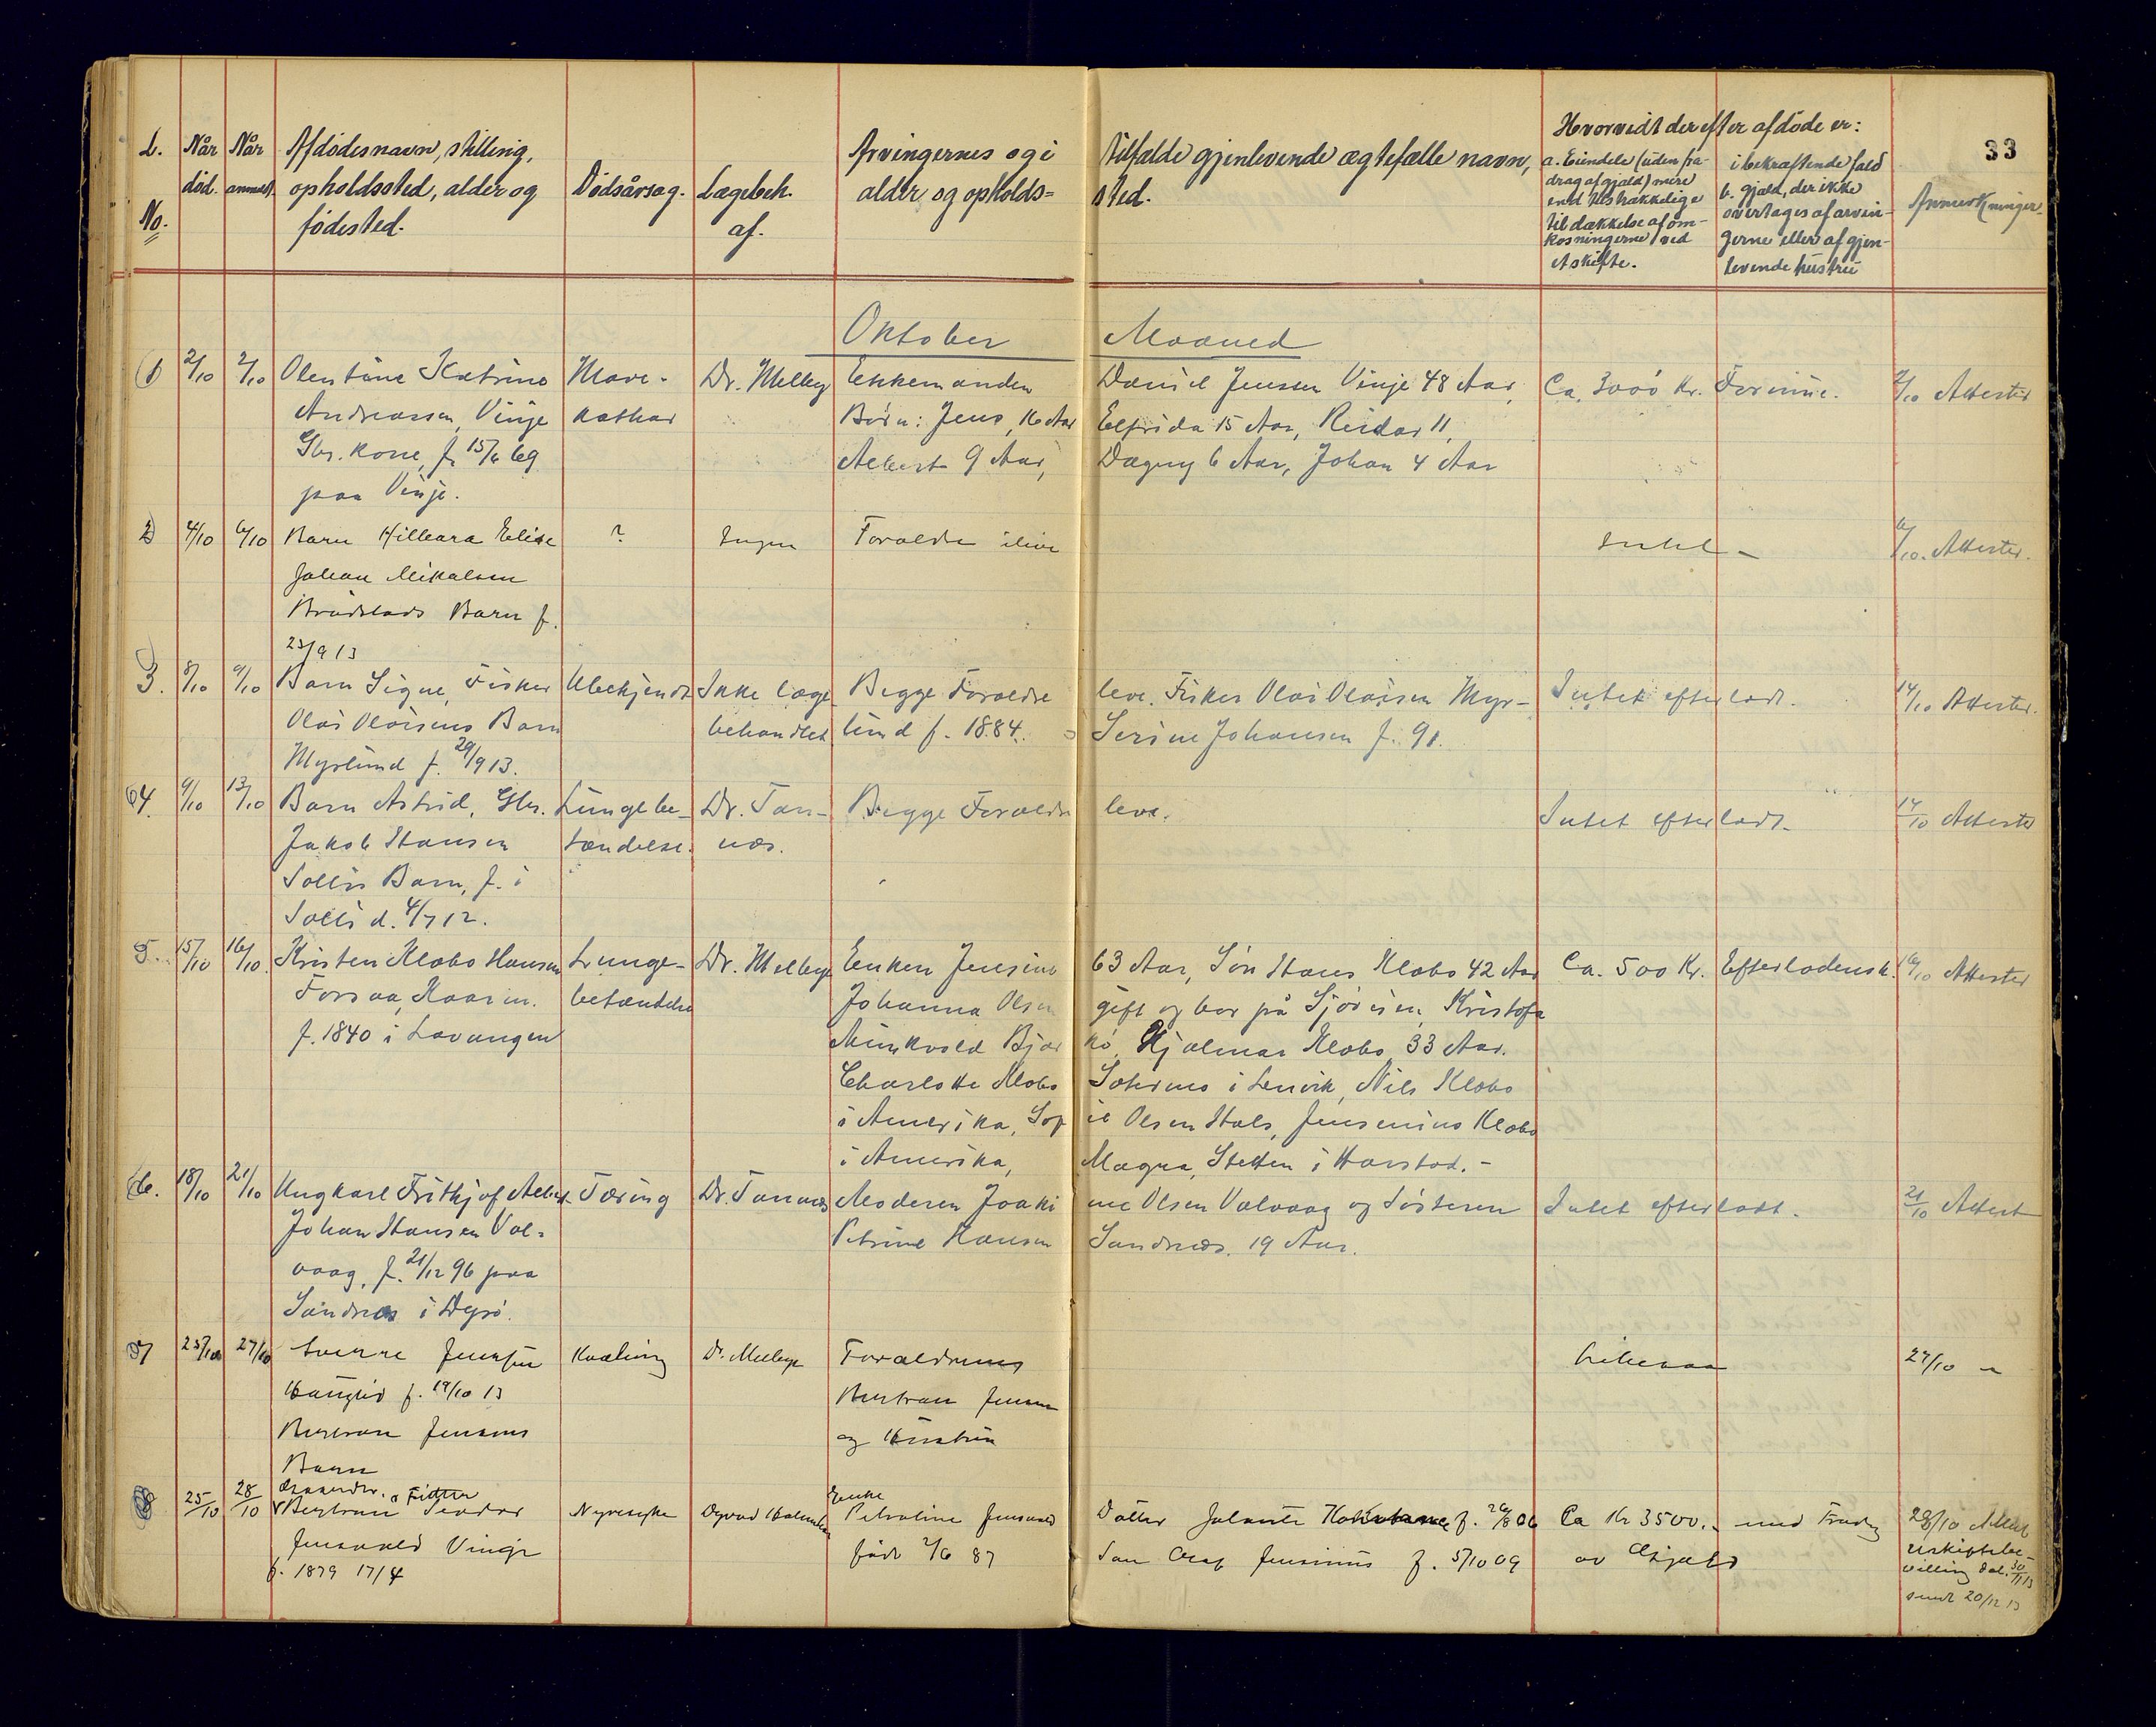 33
L. No.
Når død.
Når anmeldt.
Afdödes navn, stilling,
opholdssted, alder og
födested.
Dödsårsag.
Lægebeh.
af.
Arvingernes og i tilfælde gjenlevende ægtefælle navn,
alder og opholds= sted.
Hvorvidt der efter afdöde er:
a. Eiendele (uden fra-
drag af gjæld) mere
end tilstrækkelige
til dækkelse af om-
kosningerne ved
et skifte.
i bekræftende fald
b. gjæld, der ikke
overtages af arvin-
gerne eller af gjen-
levende hustru
Anmerkninger.
Oktober Maaned
1 2/10 2/10 Olentine Katrine Mave- Dr. Melbye Ekkemanden Daniel Jenssen Vinje 48 Aar, Ca. 3000 Kr. Formue. 2/10 Attester
Andreassen, Vinje kathar Børn: Jens, 16 Aar Elfrida 15 Aar, Reidar 11,
Gbr. kone, f. 15/6 69 Albert 9 Aar, Dagny 6 Aar, Johan 4 Aar
paa Vinje.
2 4/10 6/10 Barn Hilleara Elise ? Ingen Forældre ilive Intet - 6/10. Attester.
Johan Mikalsen
Barn f.
23/9 13
3. 8/10 9/10 Barn Signe, Fisker Ubekjendt Ikke læge Begge Forældre leve. Fisker Olai Olaisen Myr- Intet efterladt. 14/10 Attester.
Olai Olaisens Barn behandlet lund f. 1884. Serine Johansen f. 91.
Myrlund f. 29/9 13.
4. 9/10 13/10 Barn Astrid, Gbr. Lungebe- Dr. Tan- Begge Forældre leve. Intet efterladt. 14/10 Attester
Jakob Hansen tændelse. næs.
Sollis Barn, f. i
Solli d. 4/7 12.
5. 15/10 16/10. Kristen Klæbo Hansen Lunge- Dr. Melbye Enken Jensine 63 Aar, Søn Hans Klæbo 42 Aar Ca. 500 Kr. Efterladensk. 16/10 Attester
Forsaa, Kaarm. betændelse Johanna Olsen gift og bor på Sjøvesen, Kristofa
f. 1840 i Lavangen Minkvold Bjar kø, Hjalmar Klæbo 33 Aar.
Charlotte Klæbo i Lenvik, Nils Klæbo
i Amerika, Sof ie Olsen Hals, Jensenius Klæbo
i Amerika, Magna, Stetten i Harstad. -
6. 18/10 21/10 Ungkarl Frithjof Albert Tæring Dr. Tannæs Moderen Joaki ne Olsen Valvaag og Søsteren Intet efterladt. 21/10 Attest
Johan Hansen Val- Petrine Hansen Sandnes. 19 Aar.
vaag, f. 21/12 96 paa
Sandnes i Dyrø.
7 23/10 27/10 Sverre Jensen Kvæling Dr. Melbye Forældrene Likesaa 27/10 "
f. 19/10 13 Bertran Jensen
Bertran Jensens og Hustru
Barn
8 25/10 28/10 Fisker Enke
Bertran Teodor Nyresyke Petroline Jensvold Datter Jolante f. 26/8 06 Ca Kr 3500.- med Fradrag 28/10 Attest
Jensvold Vinje født 2/6 87 Søn Olaf Jensinius f. 5/10 09 av Gjæld
f. 1879 17/4 villing dat. 30/11 13
sendt 20/12 13